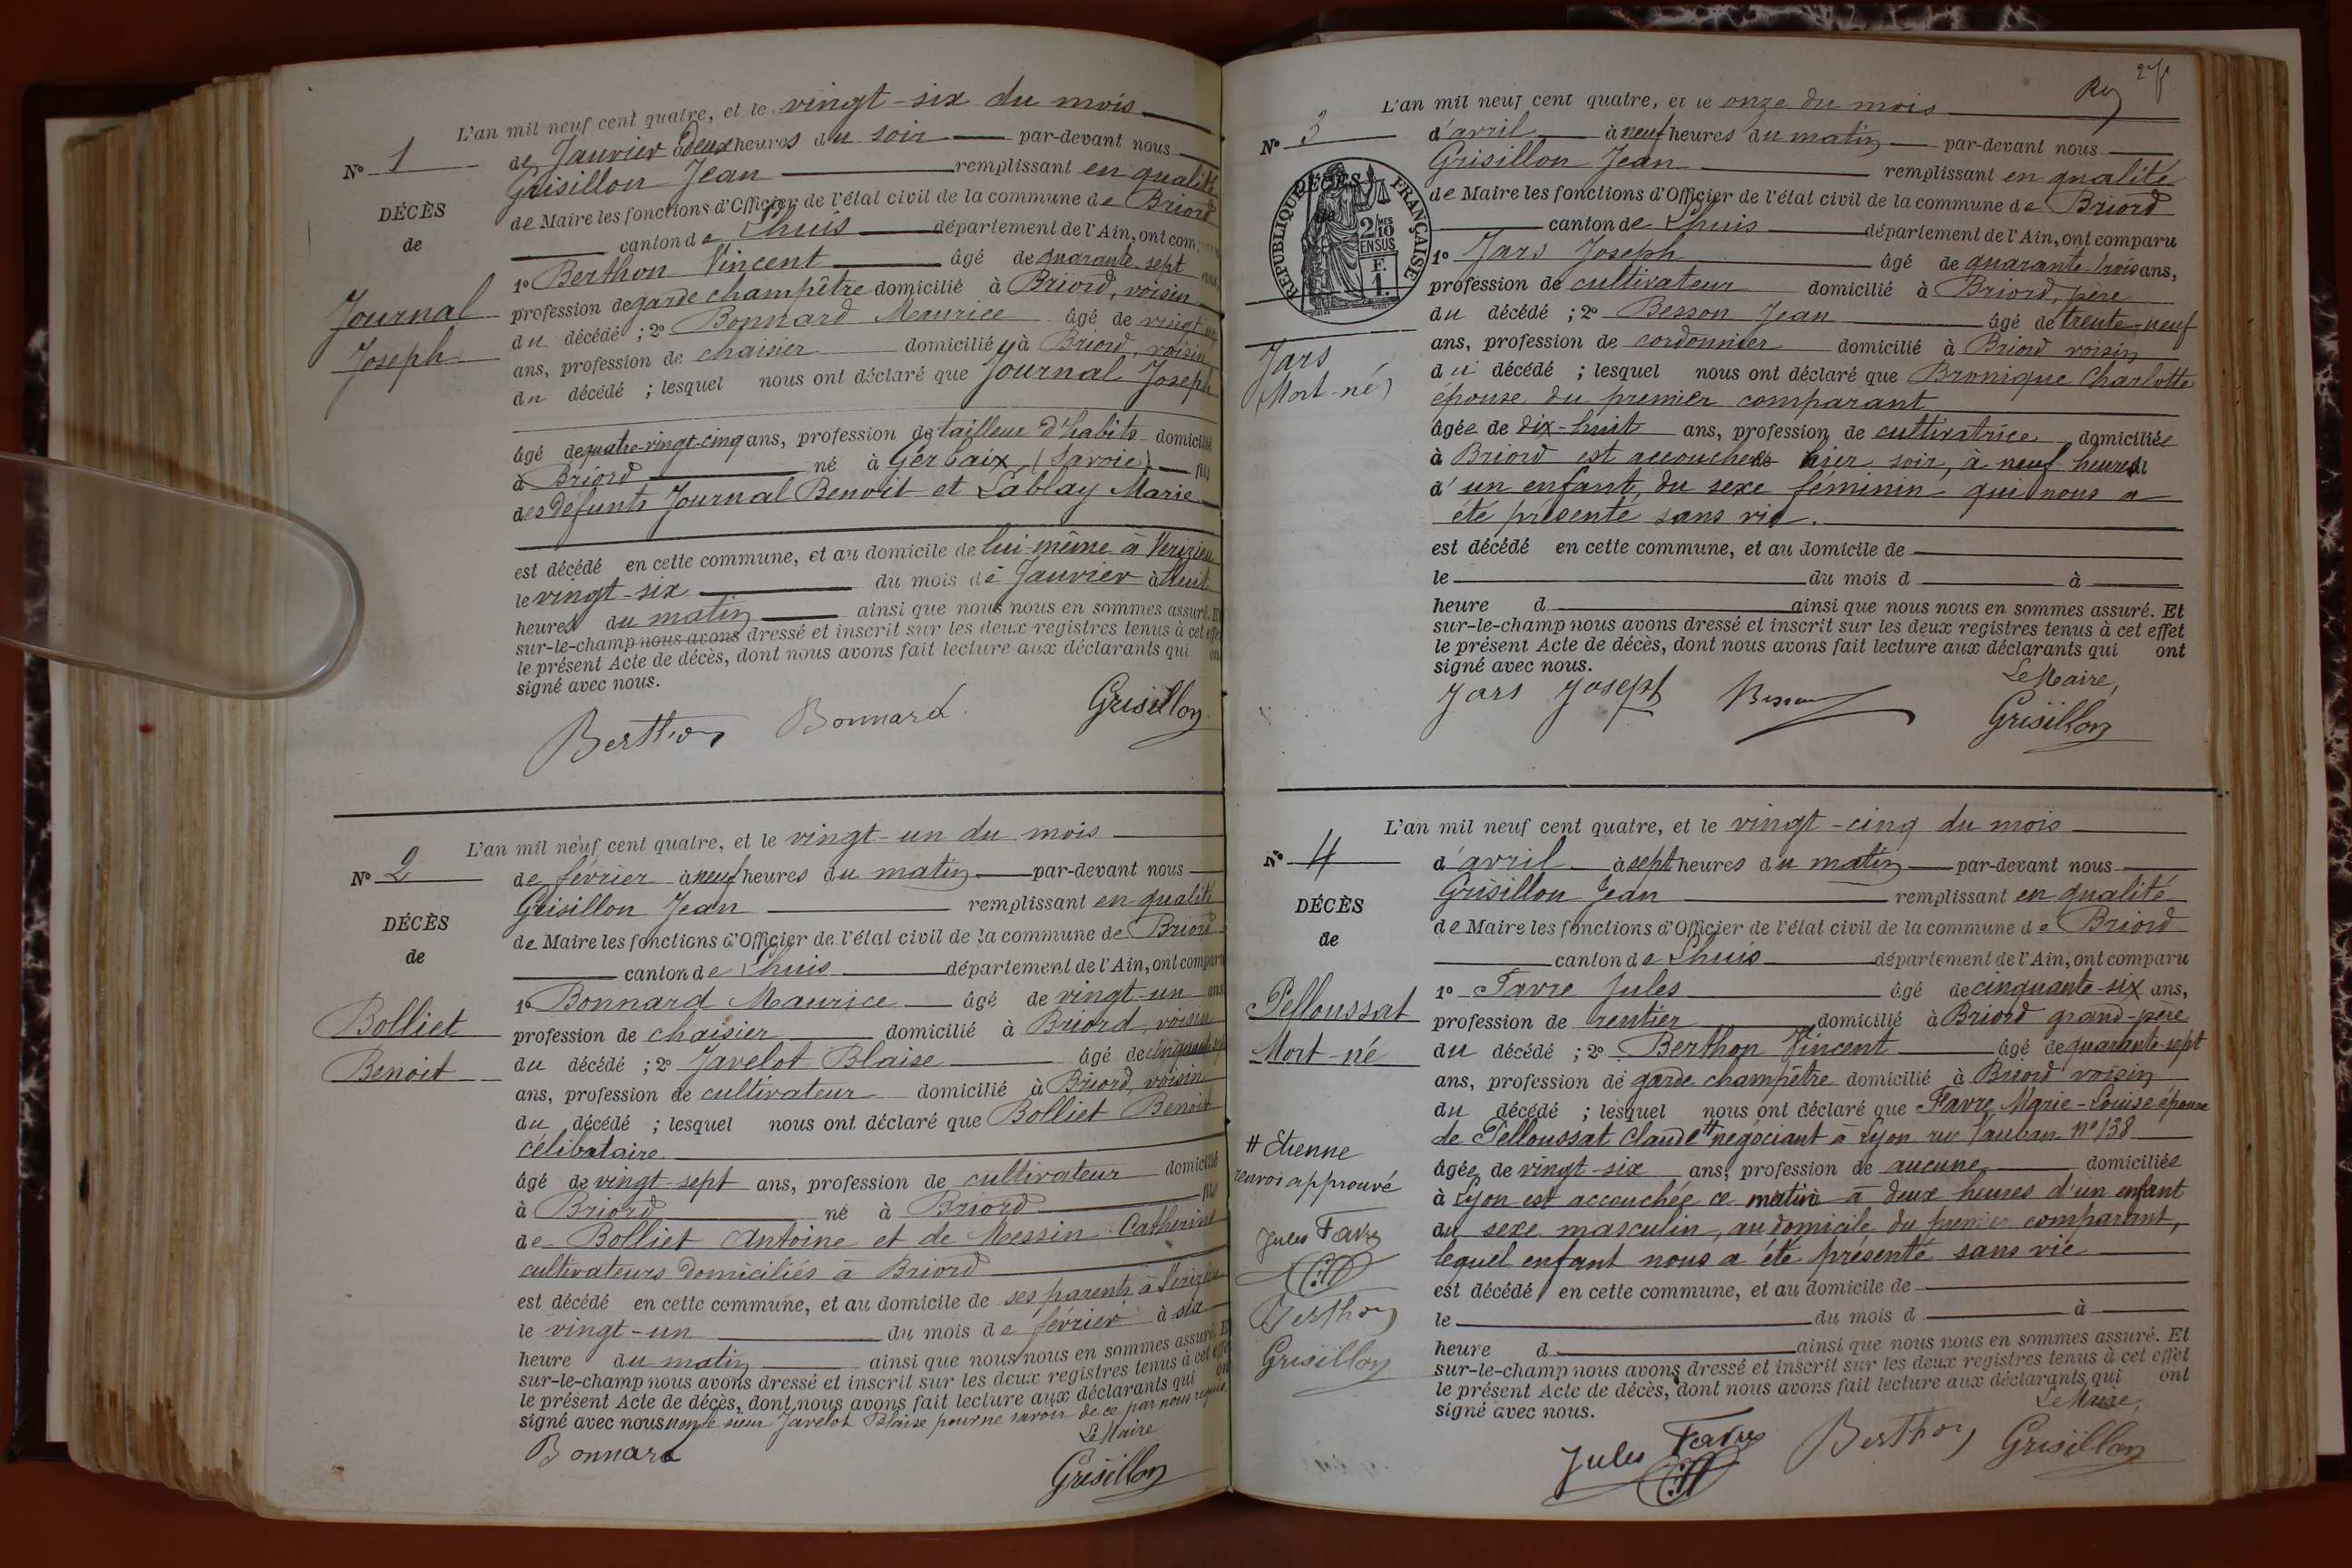 L'an mil neuf cent quatre, et le vingt-six du mois
N° 1
de Janvier à deux heures du soir par-devant nous
Grisillon Jean remplissant en qualité
DÉCÈS
de Maire les fonctions d'Officier de l'état civil de la commune de Briord
de
canton de Lhuis département de l'Ain, ont comparu
1° Berthon Vincent âgé de quarante-sept ans,
Journal
profession de garde champêtre domicilié à Briord, voisin
du décédé ; 2° Bonnard Maurice âgé de vingt un
Joseph
ans, profession de chaisier domicilié à Briord, voisin
du décédé ; lesquel nous ont déclaré que Journal Joseph
âgé de quatre-vingt-cinq ans, profession de tailleur d'habits domicilié
à Briord né à Gerbaix (Savoie) fils
des défunts Journal Benoit et Lablay Marie
est décédé en cette commune, et au domicile de lui-même à Verizieu
le vingt-six du mois de Janvier à huit
heures du matin ainsi que nous nous en sommes assuré. Et
sur-le-champ nous avons dressé et inscrit sur les deux registres tenus à cet effet
le présent Acte de décès, dont nous avons fait lecture aux déclarants qui ont
signé avec nous.
Berthon Bonnard Grisillon
L'an mil neuf cent quatre, et le vingt-un du mois
N° 2
de février à neuf heures du matin par-devant nous
Grisillon Jean remplissant en qualité
DÉCÈS
de Maire les fonctions d'Officier de l'état civil de la commune de Briord
de
canton de Lhuis département de l'Ain, ont comparu
1° Bonnard Maurice âgé de vingt-un ans
Bolliet
profession de chaisier domicilié à Briord, voisin
Benoit
du décédé ; 2° Javelot Blaise âgé de
ans, profession de cultivateur domicilié à Briord, voisin
du décédé ; lesquel nous ont déclaré que Bolliet Benoit
célibataire
âgé de vingt-sept ans, profession de cultivateur domicilié
à Briord né à Briord fils
de Bolliet Antoine et de Messin Catherine
cultivateurs domiciliés à Briord
est décédé en cette commune, et au domicile de ses parents à Verizieu
le vingt-un du mois de février à six
heure du matin ainsi que nous nous en sommes assuré. Et
sur-le-champ nous avons dressé et inscrit sur les deux registres tenus à cet effet
le présent Acte de décès, dont nous avons fait lecture aux déclarants qui ont
signé avec nous non le sieur Javelot Blaise pour ne savoir de ce par nous requis.
Le Maire
Bonnard Grisillon
Rey
L'an mil neuf cent quatre, et le onze du mois
N° 3
d'avril à neuf heures du matin par-devant nous
Grisillon Jean remplissant en qualité
RÉPUBLIQUE FRANÇAISE
DÉCÈS
de
2/10 MES EN SUS
F. 1.
de Maire les fonctions d'Officier de l'état civil de la commune de Briord
canton de Lhuis département de l'Ain, ont comparu
1° Jars Joseph âgé de quarante-trois ans,
profession de cultivateur domicilié à Briord, père
du décédé ; 2° Besson Jean âgé de trente-neuf
ans, profession de cordonnier domicilié à Briord voisin
Jars
(Mort-né)
du décédé ; lesquel nous ont déclaré que Bronique Charlotte
épouse du premier comparant
âgée de dix-huit ans, profession de cultivatrice domiciliée
à Briord est accouchée hier soir, à neuf heures
d'un enfant, du sexe féminin qui nous a
été présenté sans vie.
est décédé en cette commune, et au domicile de
le du mois d à
heure d ainsi que nous nous en sommes assuré. Et
sur-le-champ nous avons dressé et inscrit sur les deux registres tenus à cet effet
le présent Acte de décès, dont nous avons fait lecture aux déclarants qui ont
signé avec nous.
Le Maire,
Jars Joseph Besson Grisillon
L'an mil neuf cent quatre, et le vingt-cinq du mois
N° 4
d'avril à sept heures du matin par-devant nous
Grisillon Jean remplissant en qualité
DÉCÈS
de Maire les fonctions d'Officier de l'état civil de la commune de Briord
de
canton de Lhuis département de l'Ain, ont comparu
1° Favre Jules âgé de cinquante-six ans,
Pelloussat
profession de rentier domicilié à Briord grand-père
Mort-né
du décédé ; 2° Berthon Vincent âgé de quarante-sept
ans, profession de garde champêtre domicilié à Briord voisin
du décédé ; lesquel nous ont déclaré que Favre Marie-Louise épouse
de Pelloussat Claude # négociant à Lyon rue Vauban n° 138
# Etienne
renvoi approuvé
âgée de vingt-six ans, profession de aucune domiciliée
à Lyon est accouchée ce matin à deux heures d'un enfant
du sexe masculin, au domicile du premier comparant,
lequel enfant nous a été présenté sans vie
Jules Favre
Berthon
Grisillon
est décédé en cette commune, et au domicile de
le du mois d à
heure d ainsi que nous nous en sommes assuré. Et
sur-le-champ nous avons dressé et inscrit sur les deux registres tenus à cet effet
le présent Acte de décès, dont nous avons fait lecture aux déclarants qui ont
signé avec nous.
Le Maire,
Jules Favre Berthon Grisillon